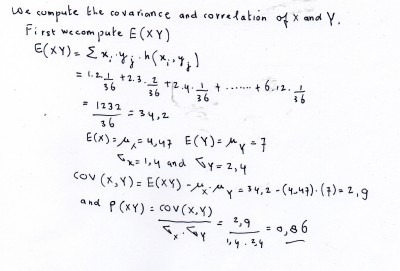 We compute the covariance and correlation of X and Y.
First we compute E(XY)
E(XY) = Σ xᵢ·yⱼ·h(xᵢ, yⱼ)
= 1.2.1/36 + 2.3.2/36 + 2.4.1/36 + ....... + 6.12.1/36
= 1232/36 = 34,2
E(X) = μₓ = 4,47 E(Y) = μ_Y = 7
σₓ = 1,4 and σ_Y = 2,4
COV(X,Y) = E(XY) - μₓ·μ_Y = 34,2 - (4,47)·(7) = 2,9
and ρ(XY) = COV(X,Y)/σₓ·σ_Y = 2,9/1,4·2,4 = 0,86